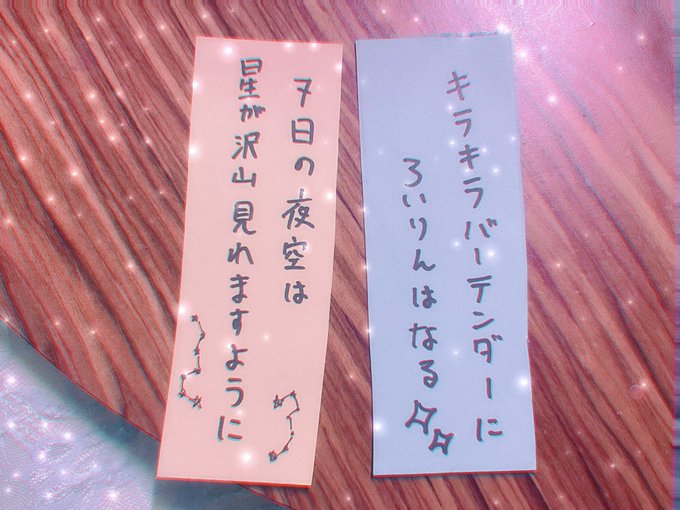 キラキラバーテンダーに
ろいりんはなる
7日の夜空は
星が沢山見れますように